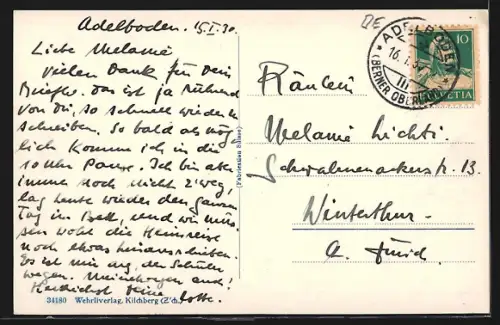 Adelboden. 15.I.30.
Liebe Melanie
Vielen Dank für Dein
Briefle. Das ist ja rührend
von Dir, so schnell wieder zu
schreiben. So bald als mög-
lich komme ich in die
10 Uhr Pause. Ich bin aber
immer noch nicht z'weg,
lag heute wieder den ganzen
Tag im Bett, und wir müs-
sen wohl die Heimreise
noch etwas hinausschieben.
Es ist mir arg, der Schule
wegen.
Herzlichst Deine Lotte.
34180 Wehrliverlag, Kilchberg (Z'ch.)
(Fabrication Suisse)
ADELBODEN
16.I.
III
(BERNER OBERLAND)
10
HELVETIA
Fräulein
Melanie Lichti
Schwalmenackerstr. 13.
Winterthur.
Ct. Zürich.